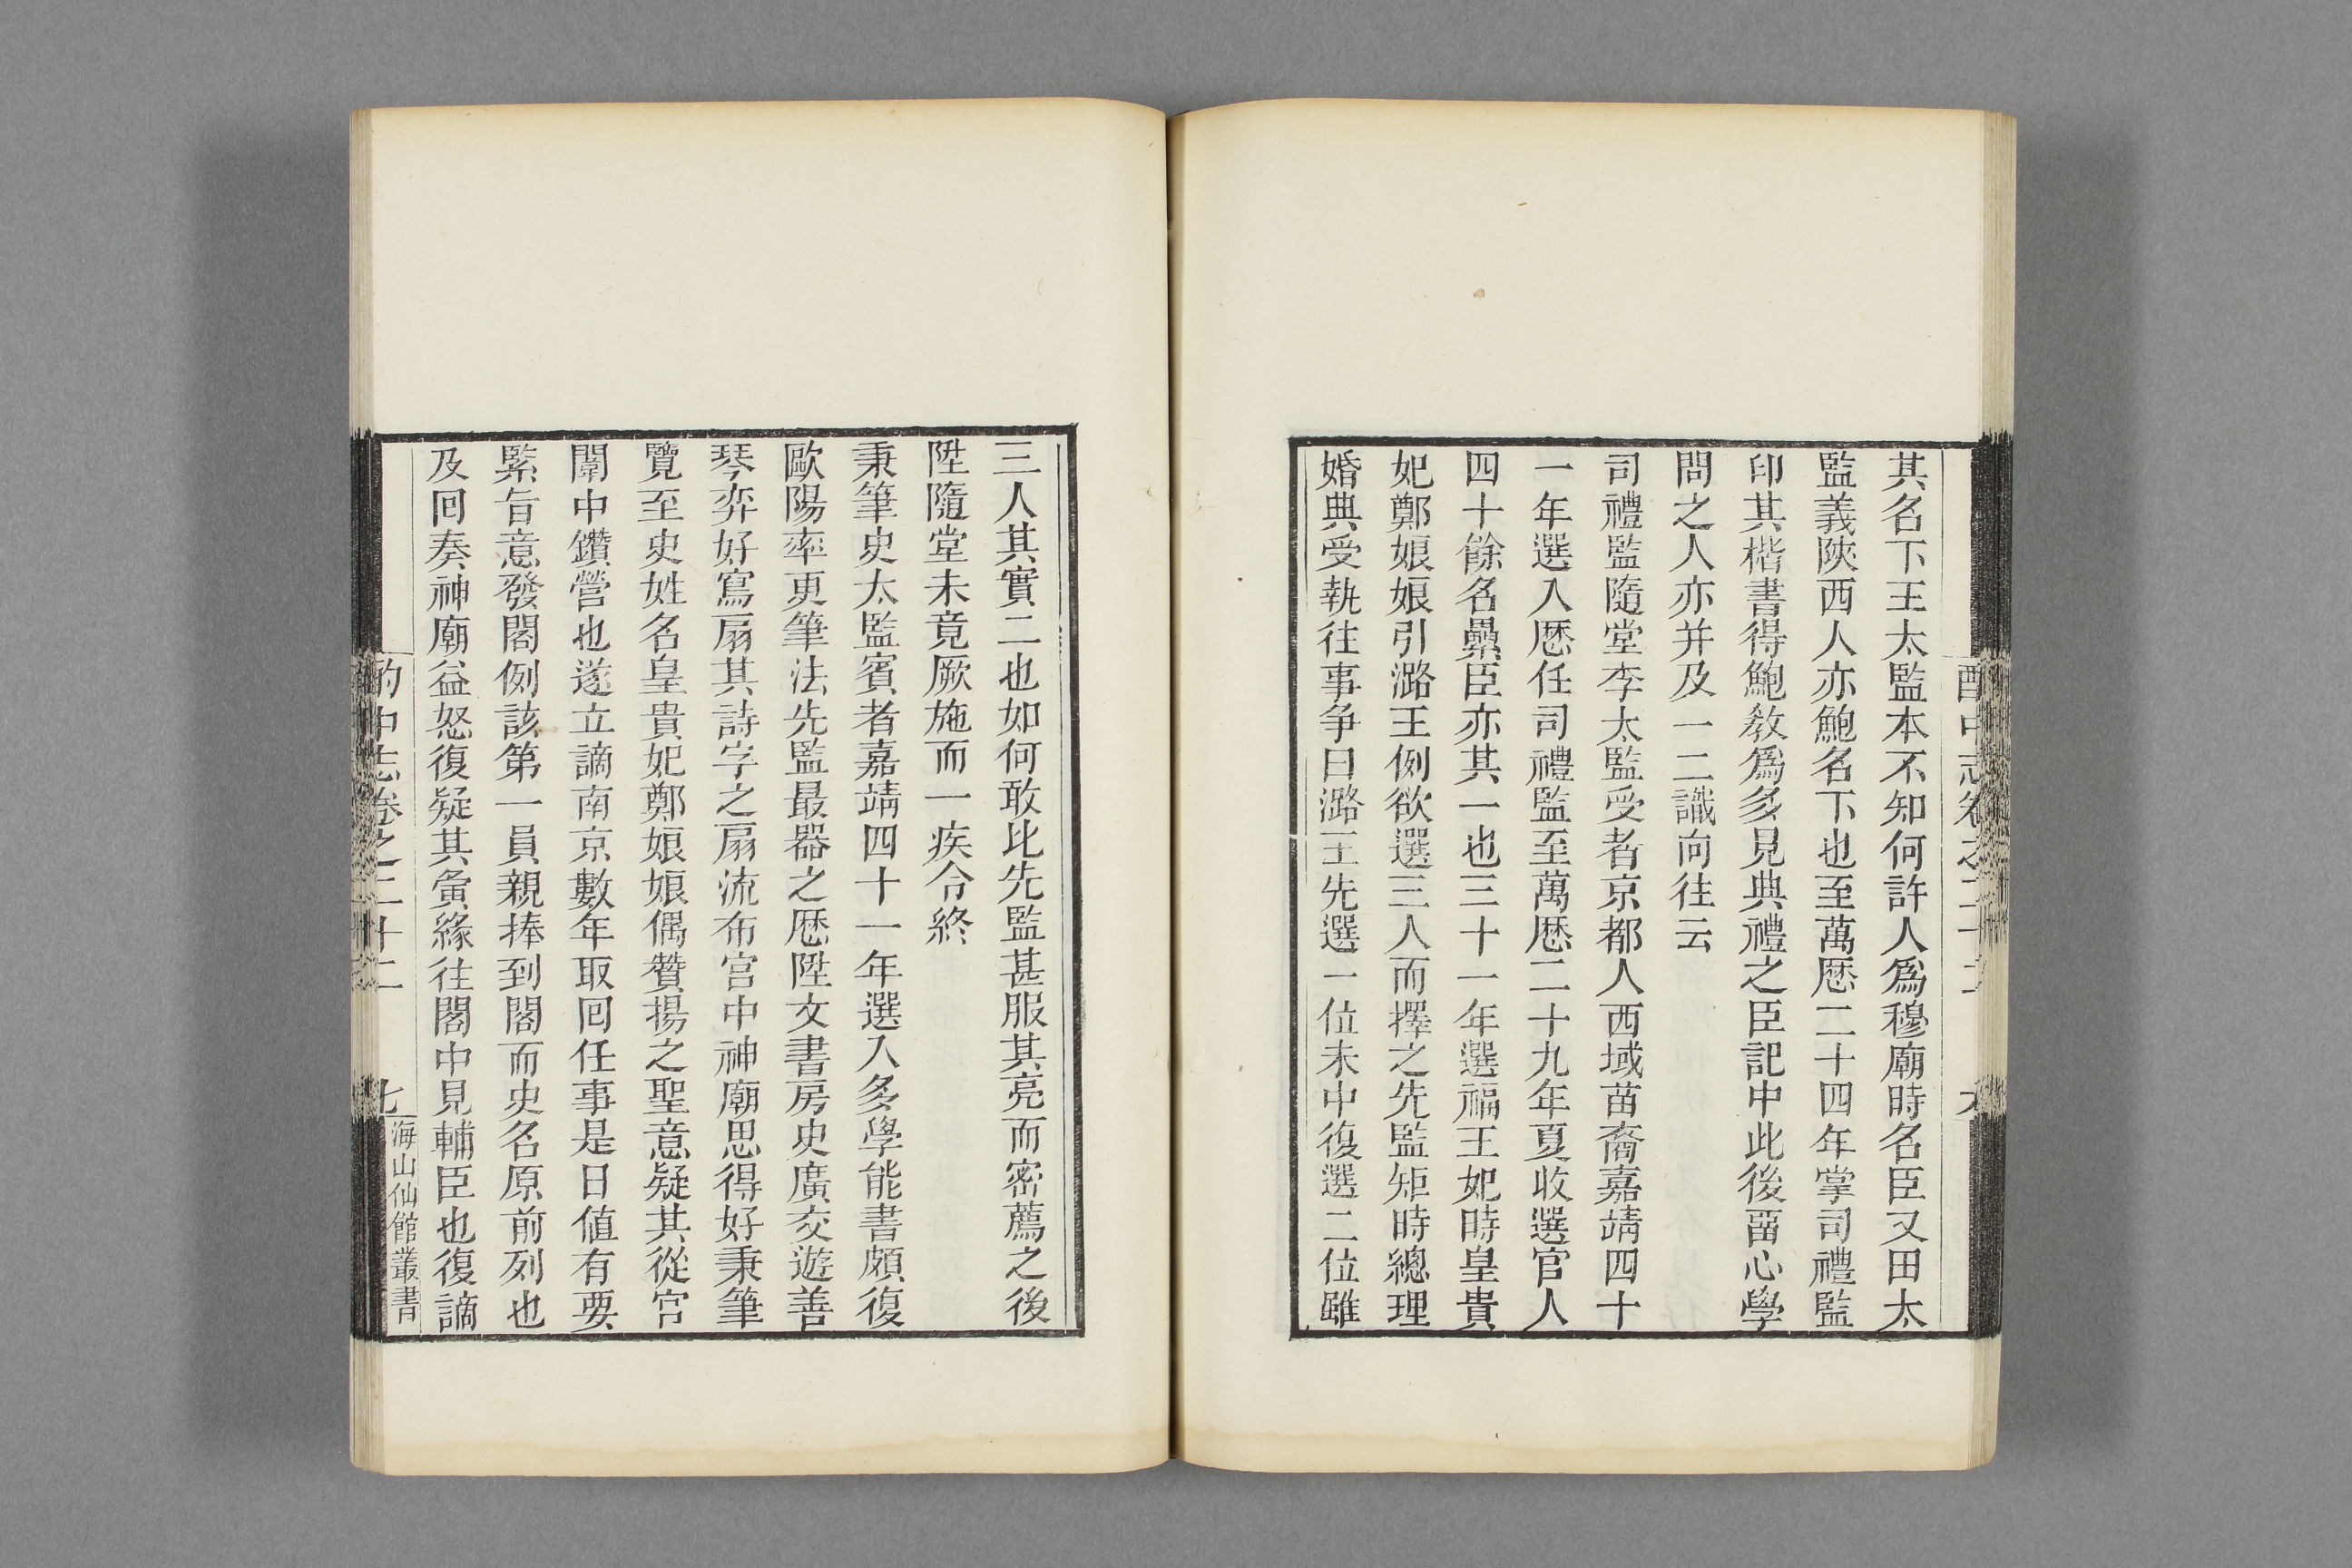 酌中志卷之二十二
其名下王太監本不知何許人爲穆廟時名臣又田太
監義陝西人亦鮑名下也至萬厯二十四年掌司禮監
印其楷書得鮑教爲多見典禮之臣記中此後畱心學
問之人亦并及一二識向往云
司禮監隨堂李太監受者京都人西域苗裔嘉靖四十
一年選入厯任司禮監至萬厯二十九年夏收選官人
四十餘名纍臣亦其一也三十一年選福王妃時皇貴
妃鄭娘娘引潞王例欲選三人而擇之先監矩時總理
婚典受執往事爭曰潞王先選一位未中復選二位雖
三人其實二也如何敢比先監甚服其亮而密薦之後
陞隨堂未竟厥施而一疾令終
秉筆史太監賓者嘉靖四十一年選入多學能書頗復
歐陽率更筆法先監最器之厯陞文書房史廣交遊善
琴弈好寫扇其詩字之扇流布宮中神廟思得好秉筆
覽至史姓名皇貴妃鄭娘娘偶贊揚之聖意疑其從宮
闈中鑽營也遂立謫南京數年取回任事是日値有要
緊旨意發閣例該第一員親捧到閣而史名原前列也
及回奏神廟益怒復疑其夤緣往閣中見輔臣也復謫
酌中志卷之二十二
七
海山仙館叢書